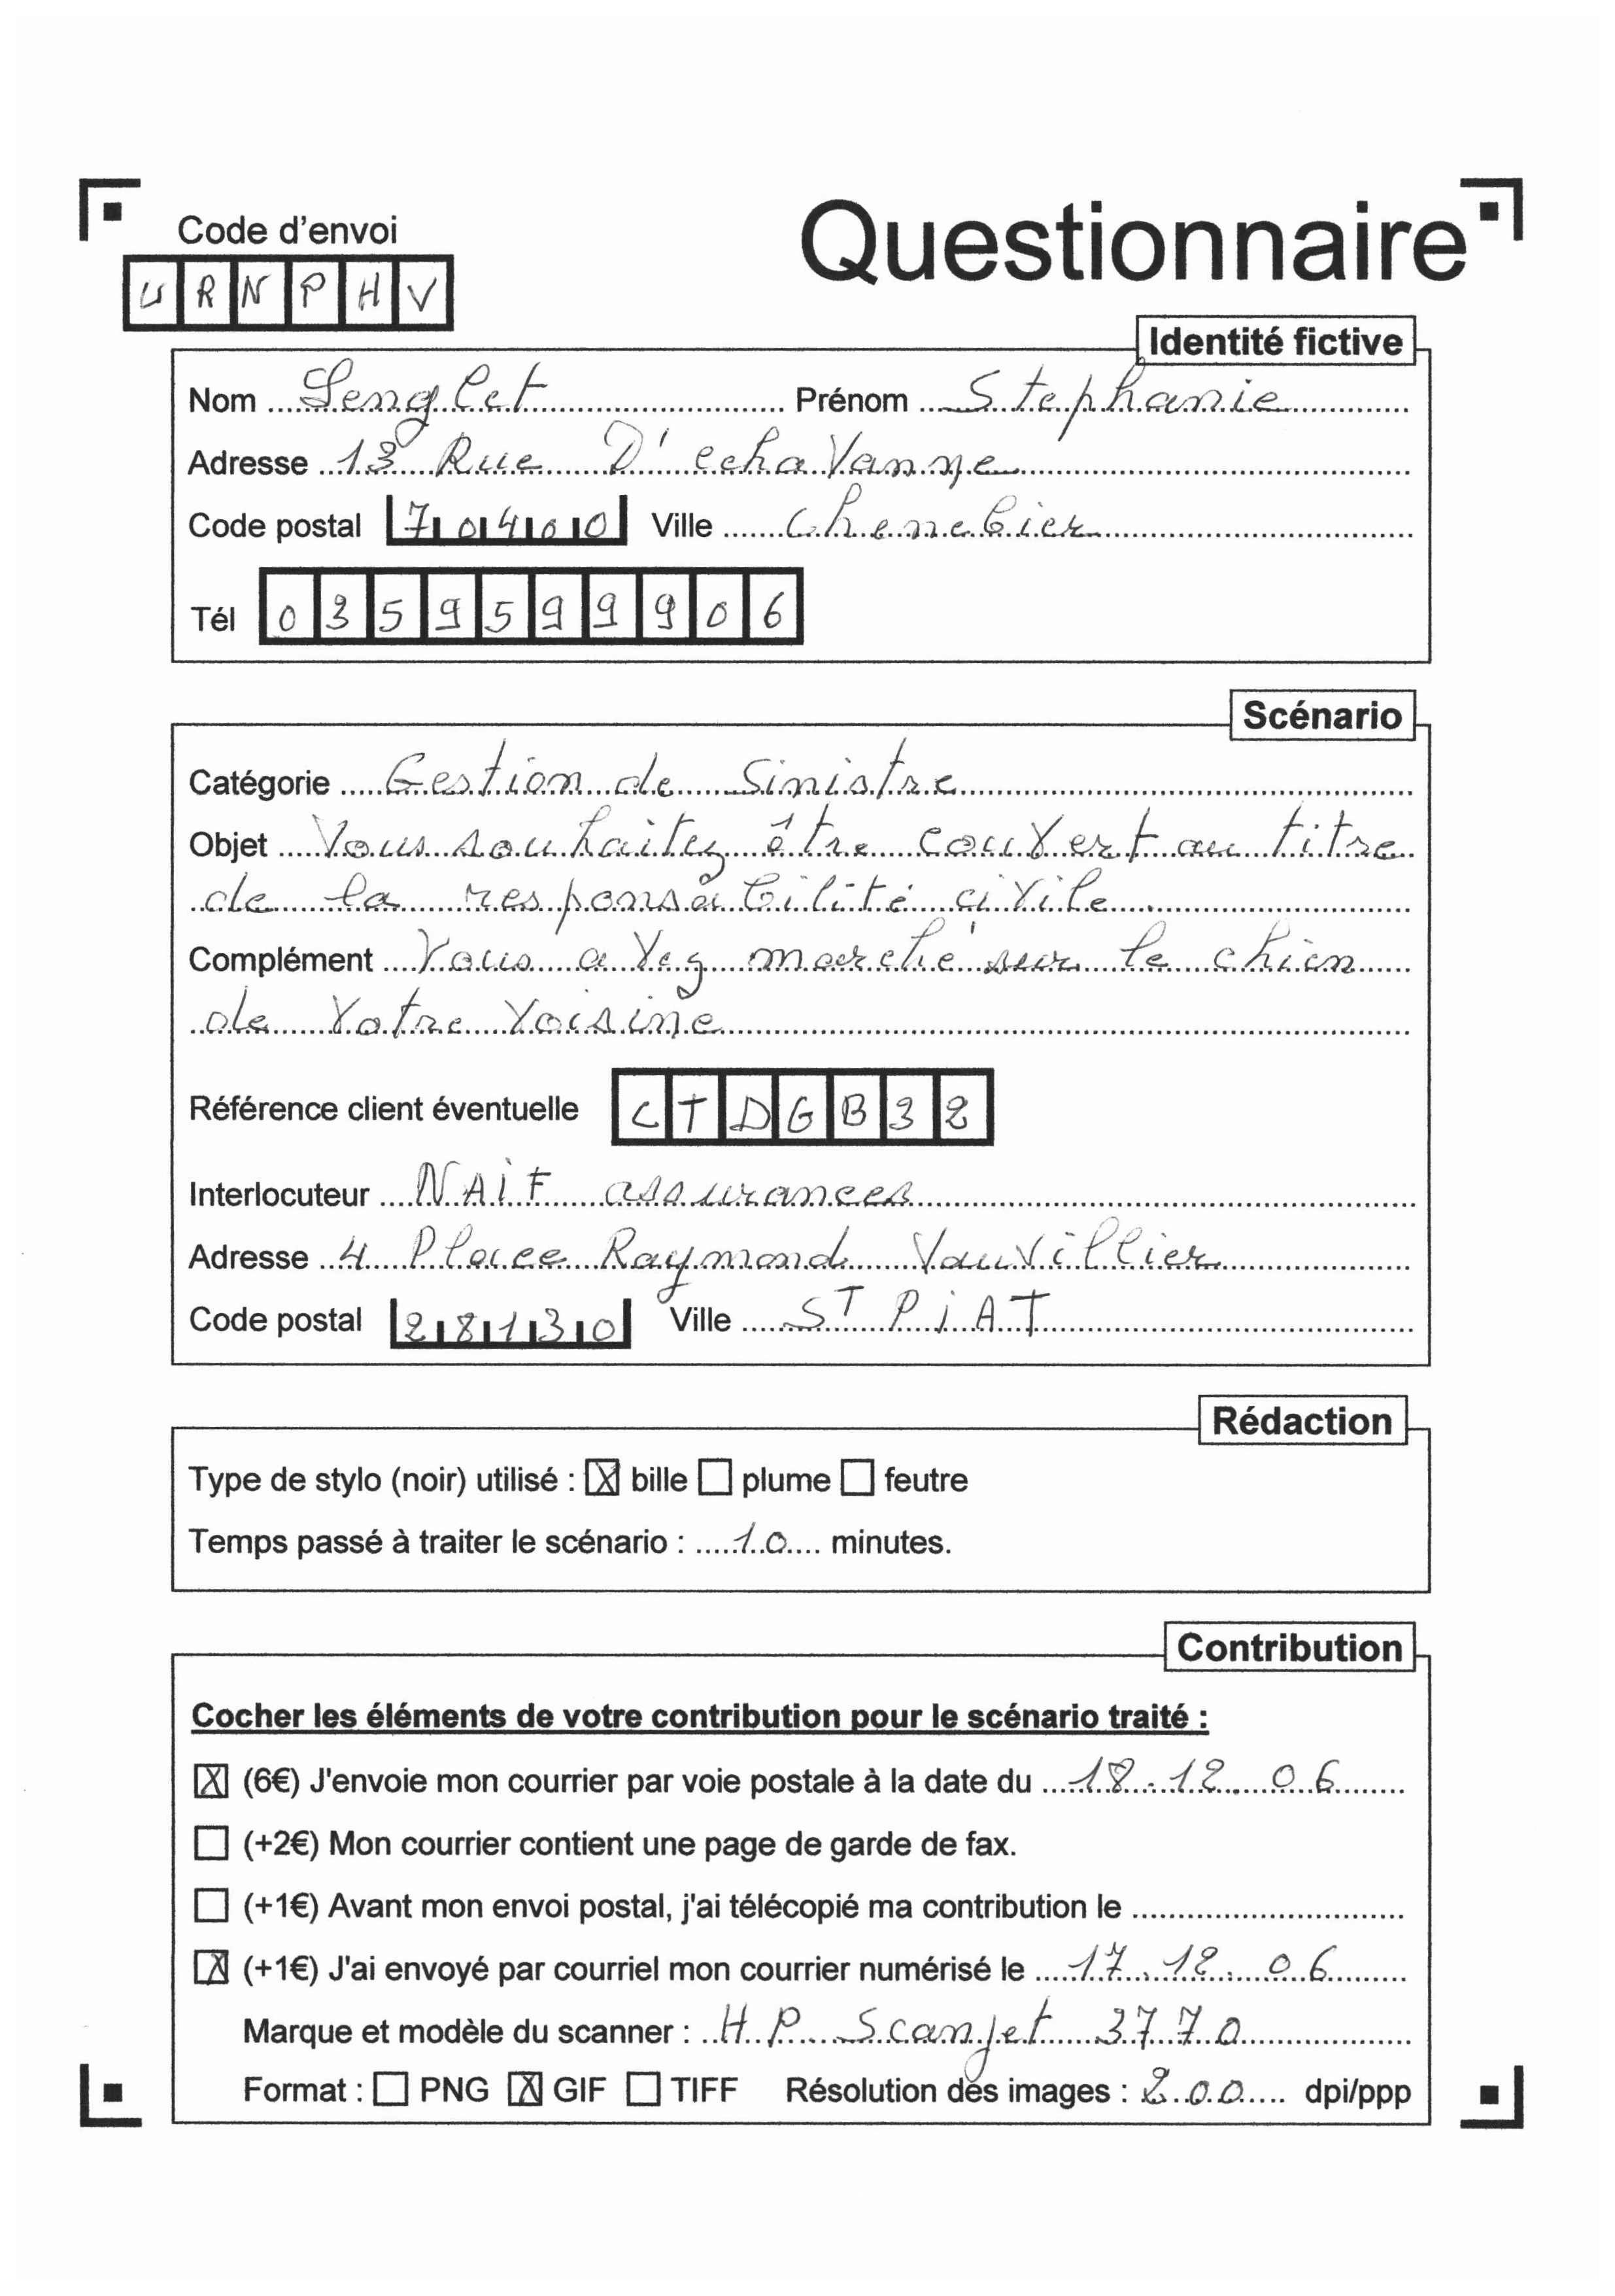 Code d'envoi
Questionnaire
U R N P H V
Identité fictive
Nom Lenglet Prénom Stephanie
Adresse 13 Rue D'echaVanne
Code postal 70400 Ville Chenebier
Tél 0359599906
Scénario
Catégorie Gestion de Sinistre
Objet Vous souhaitez être couvert au titre
de la responsabilité civile.
Complément Vous avez marché sur le chien
de Votre Voisine
Référence client éventuelle CTDGB32
Interlocuteur NAiF assurances
Adresse 4 Place Raymond VauVillier
Code postal 28130 Ville ST PiAT
Rédaction
Type de stylo (noir) utilisé : bille plume feutre
Temps passé à traiter le scénario : 10 minutes.
Contribution
Cocher les éléments de votre contribution pour le scénario traité :
(6€) J'envoie mon courrier par voie postale à la date du 18.12.06
(+2€) Mon courrier contient une page de garde de fax.
(+1€) Avant mon envoi postal, j'ai télécopié ma contribution le
(+1€) J'ai envoyé par courriel mon courrier numérisé le 17.12.06
Marque et modèle du scanner : HP Scanjet 3770
Format : PNG GIF TIFF Résolution des images : 200 dpi/ppp